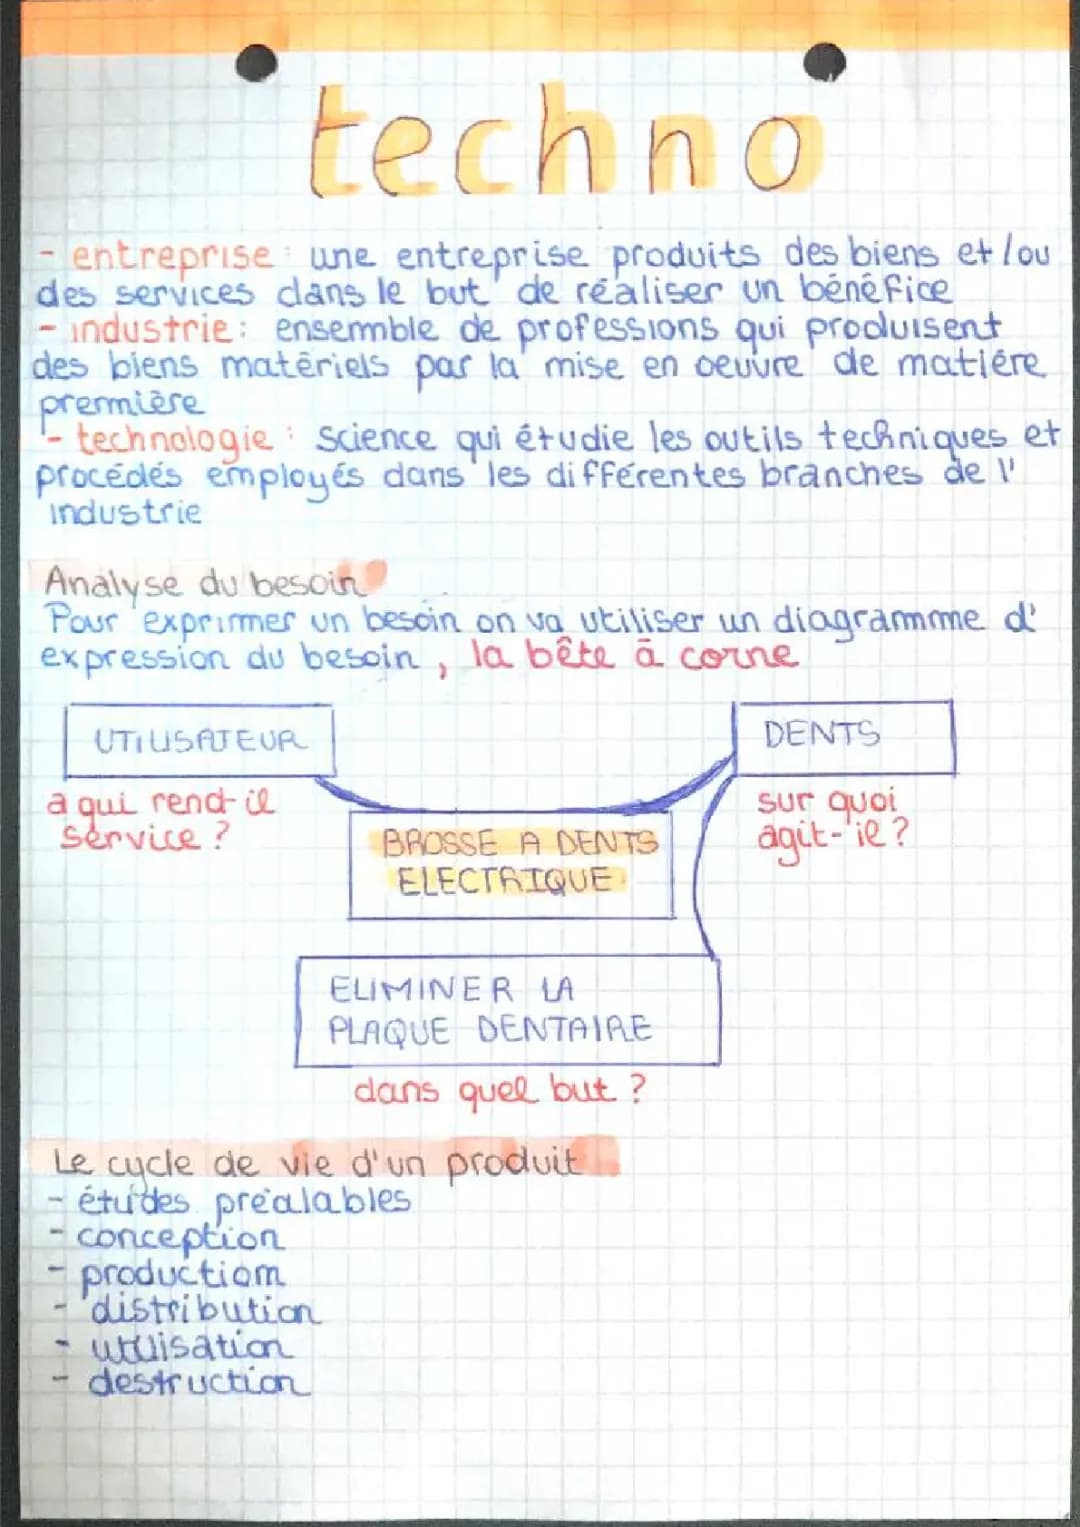 techno
- entreprise : une entreprise produits des biens et/ou
des services dans le but de réaliser un bénéfice
- industrie : ensemmble de professions qui produisent
des biens matériels par la mise en oeuvre de matiére
premmière
- technologie : Science qui étudie les outils techniques et
procédés employés dans les différentes branches de l'
industrie
Analyse du besoin
Pour exprimmer un besoin on va utiliser un diagrammme d'
expression du besoin, la bête à corne
UTILISATEUR
DENTS
a qui rend-il
service ?
sur quoi
agit-il ?
BROSSE A DENTS
ELECTRIQUE
ELIMINER LA
PLAQUE DENTAIRE
dans quel but ?
Le cycle de vie d'un produit
- études préalables
- conception
- productiom
- distribution
- utilisation
- destruction